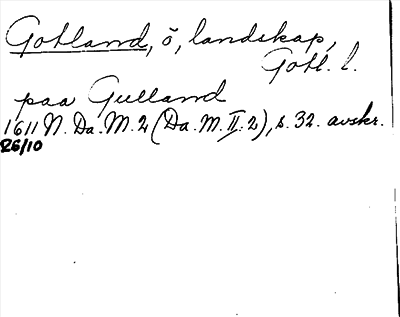 Gotland, ö, landskap,
Gotl. l.
paa Gulland
1611 N. Da. M. 2 (Da. M. II: 2), s. 32. avskr.
26/10